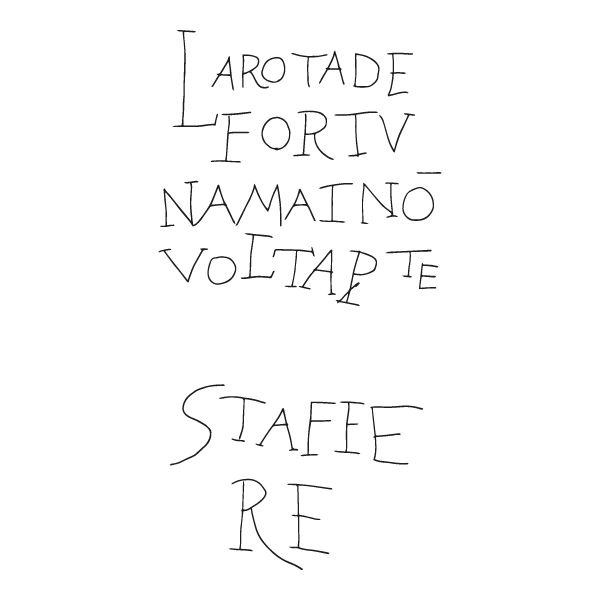 LAROTADE
FORTV
NAMAINŌ
VOLTAꝐTE
STAFIE
RE